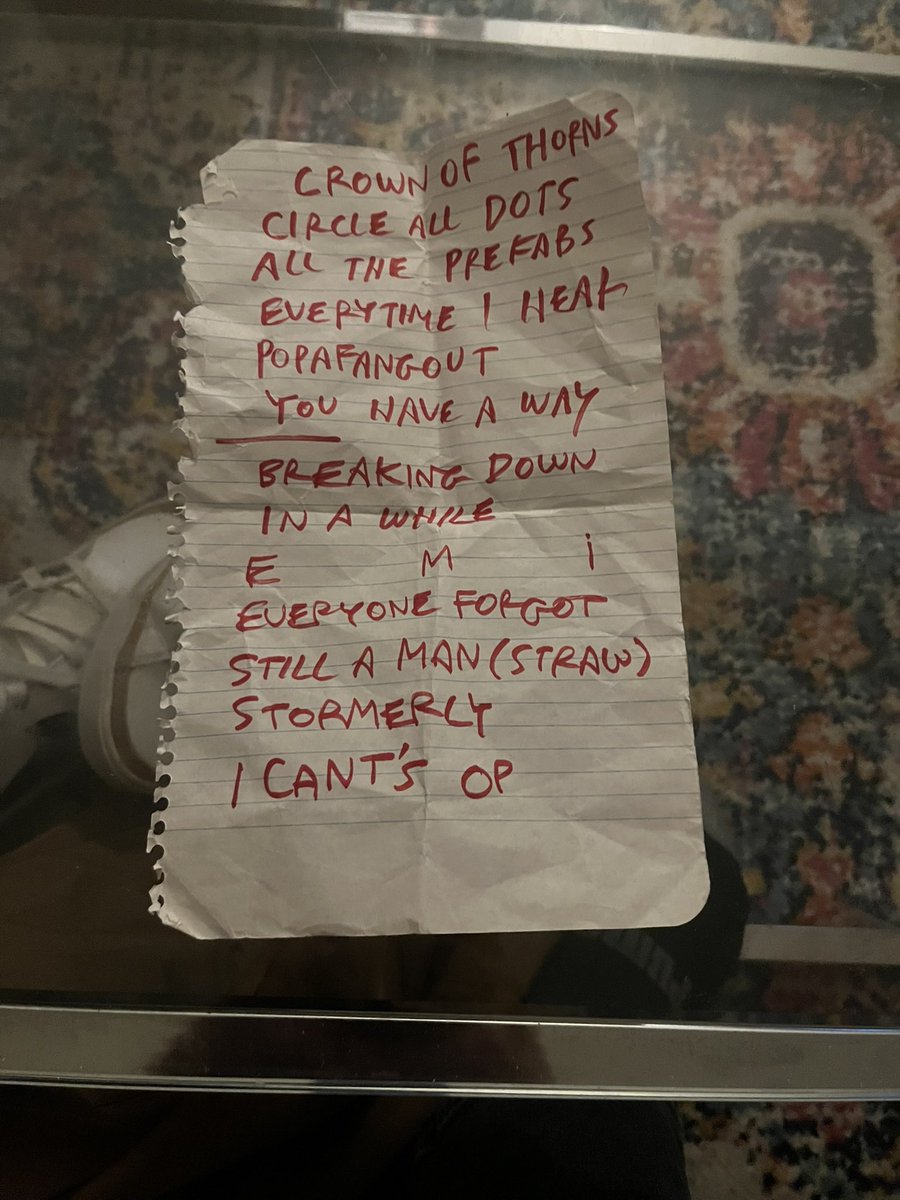 CROWN OF THORNS
CIRCLE ALL DOTS
ALL THE PREFABS
EVERYTIME I HEAR
POPAFANGOUT
YOU HAVE A WAY
BREAKING DOWN
IN A WHILE
E M i
EVERYONE FORGOT
STILL A MAN (STRAW)
STORMERCY
I CANT'S OP